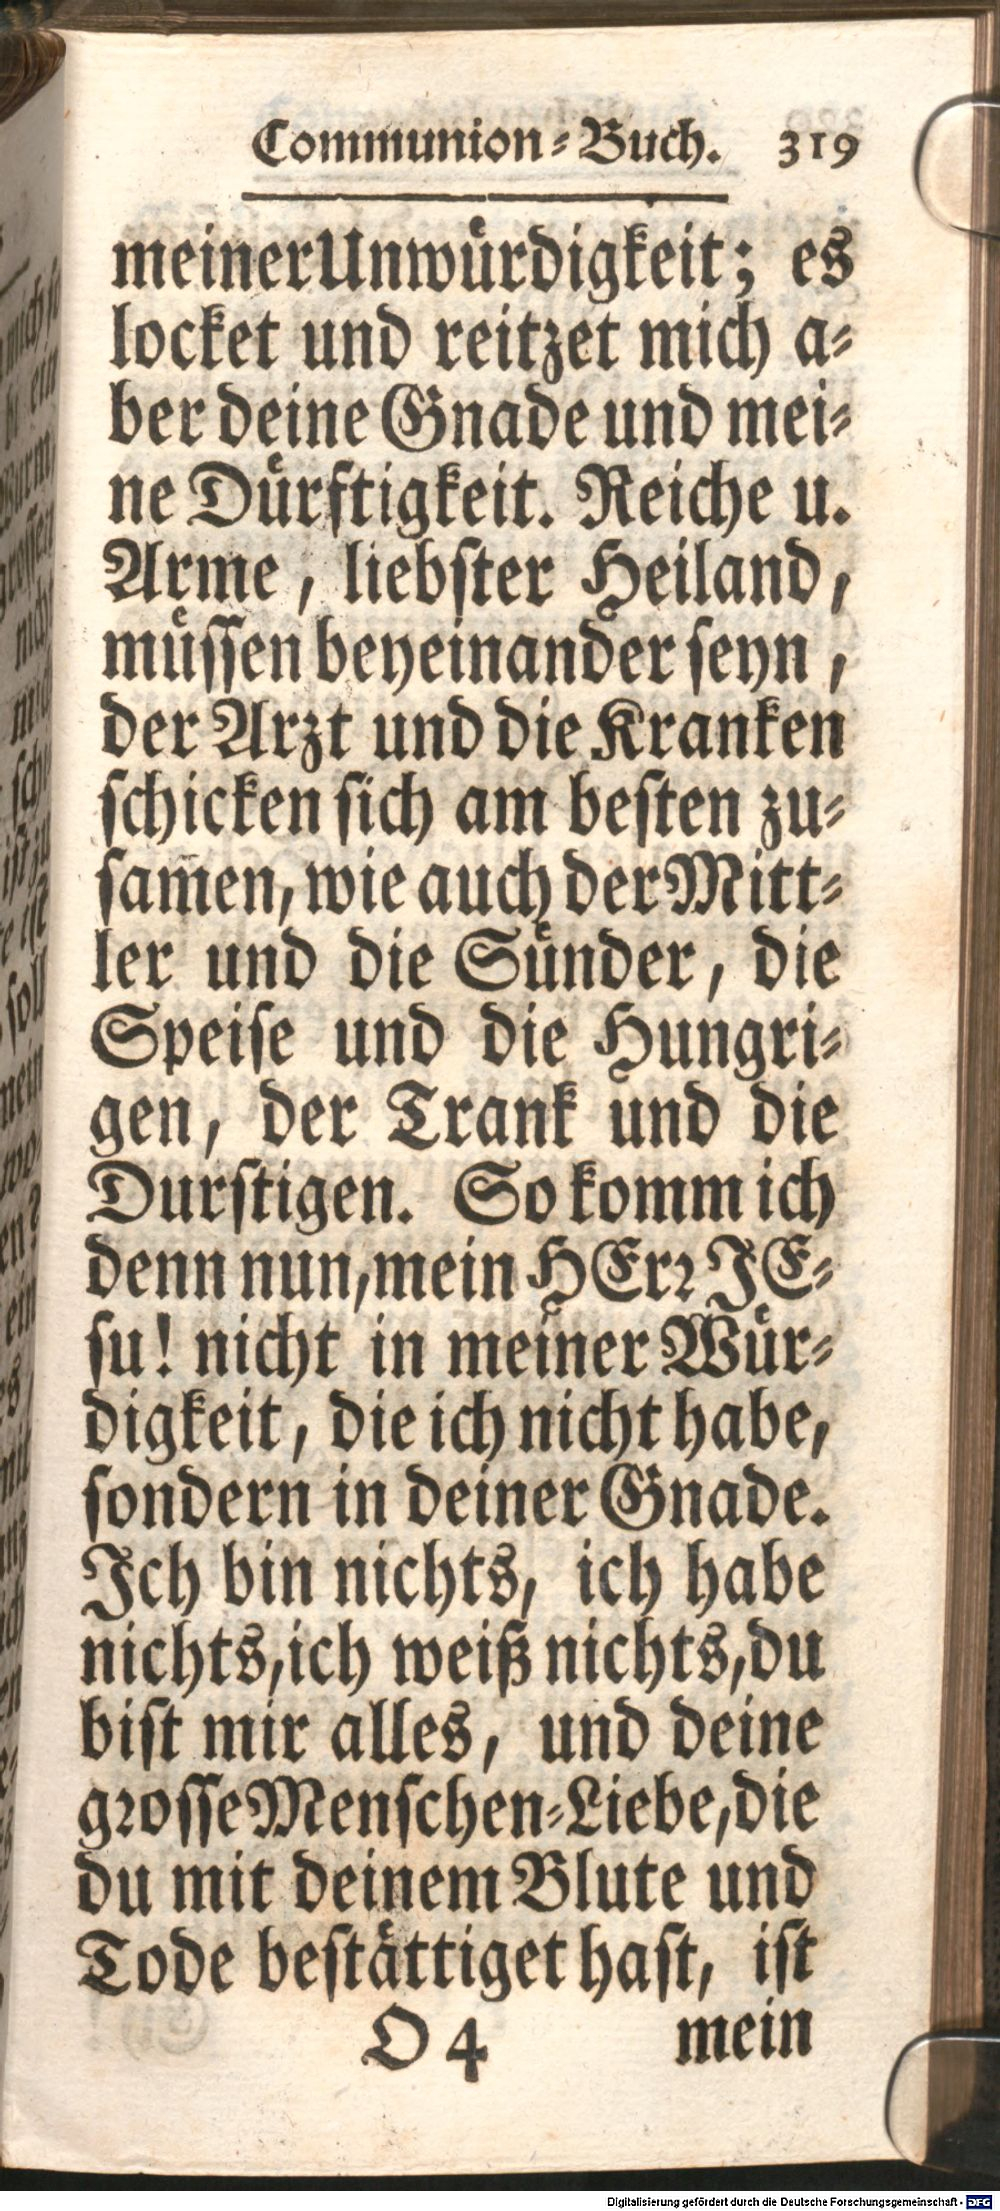 Communion-Buch. 319
meiner Unwürdigkeit; es
locket und reitzet mich a-
ber deine Gnade und mei-
ne Dürftigkeit. Reiche u.
Arme, liebster Heiland,
müssen beyeinander seyn,
der Arzt und die Kranken
schicken sich am besten zu-
sam̅en, wie auch der Mitt-
ler und die Sünder, die
Speise und die Hungri-
gen, der Trank und die
Durstigen. So komm ich
denn nun, mein HErr JE-
su! nicht in meiner Wür-
digkeit, die ich nicht habe,
sondern in deiner Gnade.
Ich bin nichts, ich habe
nichts, ich weiß nichts, du
bist mir alles, und deine
grosse Menschen-Liebe, die
du mit deinem Blute und
Tode bestättiget hast, ist
O 4 mein
Digitalisierung gefördert durch die Deutsche Forschungsgemeinschaft - DFG